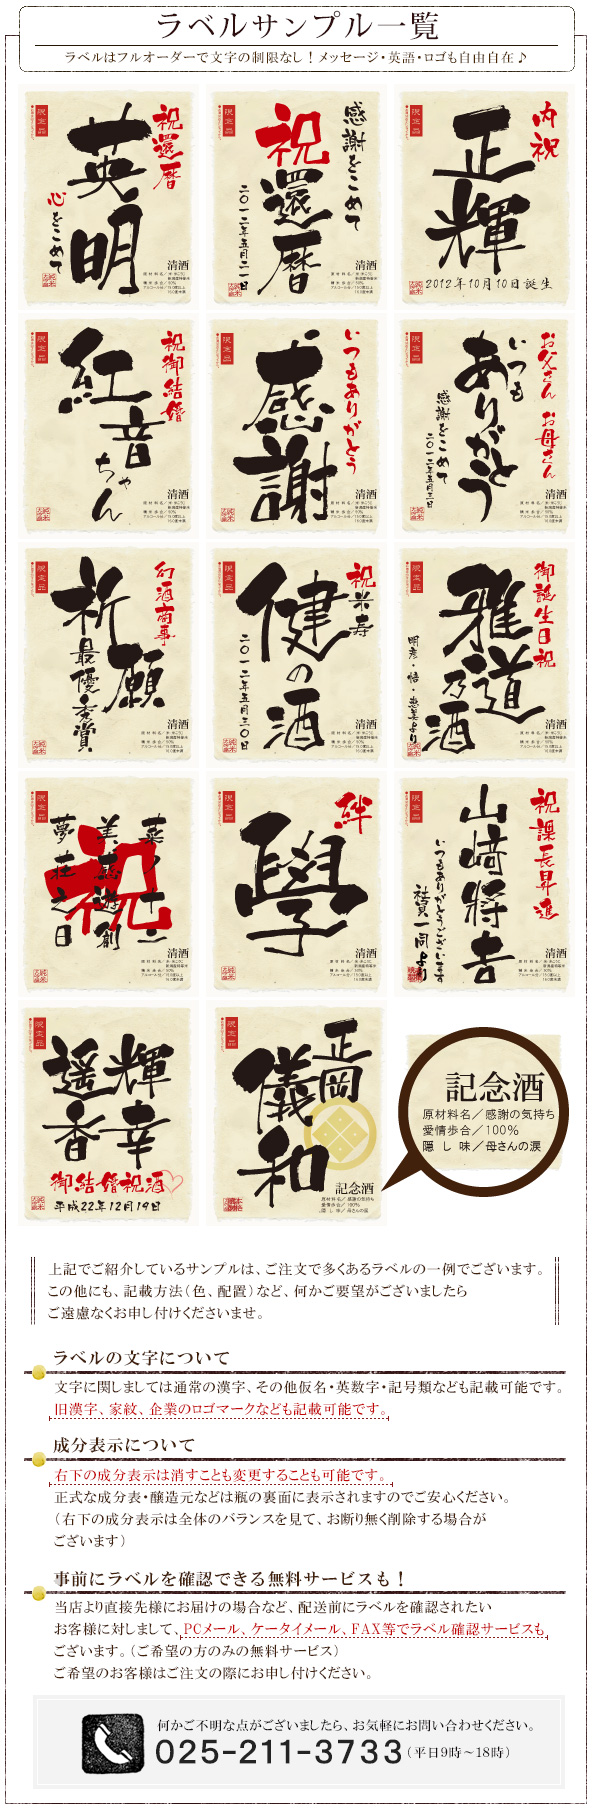 ラベルサンプル一覧
ラベルはフルオーダーで文字の制限なし！メッセージ・英語・ロゴも自由自在♪
祝還暦
英明
心をこめて
清酒
感謝をこめて
祝還暦
二〇一二年五月二一日
清酒
内祝
正輝
2012年10月10日誕生
祝御結婚
紅音ちゃん
清酒
いつもありがとう
感謝
清酒
お父さん お母さん
いつも
ありがとう
感謝をこめて
二〇一二年五月三日
清酒
幻酒商事
祈願
最優秀賞
清酒
祝米寿
健の酒
二〇一二年五月三〇日
清酒
御誕生日祝
雅道乃酒
明彦・悟・恵美より
清酒
祝
美感遊創
夢荘之日
清酒
絆
學
清酒
祝課長昇進
山﨑將吉
いつもありがとうございます
社員一同より
清酒
輝幸
遥香
御結婚祝酒
平成22年12月19日
正岡
儀和
記念酒
原材料名／感謝の気持ち
愛情歩合／100%
隠し味／母さんの涙
記念酒
原材料名／感謝の気持ち
愛情歩合／100%
隠し味／母さんの涙
上記でご紹介しているサンプルは、ご注文で多くあるラベルの一例でございます。
この他にも、記載方法（色、配置）など、何かご要望がございましたら
ご遠慮なくお申し付けくださいませ。
ラベルの文字について
文字に関しましては通常の漢字、その他仮名・英数字・記号類なども記載可能です。
旧漢字、家紋、企業のロゴマークなども記載可能です。
成分表示について
右下の成分表示は消すことも変更することも可能です。
正式な成分表・醸造元などは瓶の裏面に表示されますのでご安心ください。
（右下の成分表示は全体のバランスを見て、お断り無く削除する場合が
ございます）
事前にラベルを確認できる無料サービスも！
当店より直接先様にお届けの場合など、配送前にラベルを確認されたい
お客様に対しまして、PCメール、ケータイメール、FAX等でラベル確認サービスも
ございます。（ご希望の方のみの無料サービス）
ご希望のお客様はご注文の際にお申し付けください。
何かご不明な点がございましたら、お気軽にお問い合わせください。
025-211-3733（平日9時～18時）